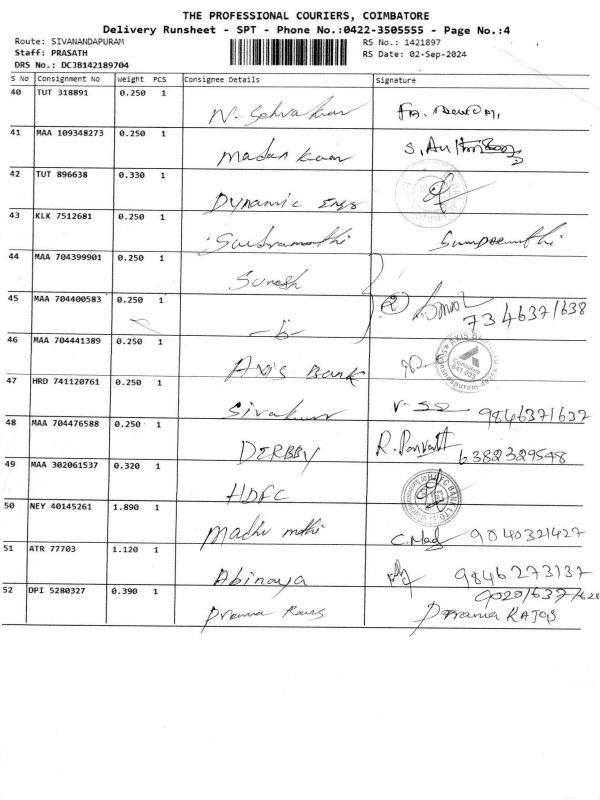 THE PROFESSIONAL COURIERS, COIMBATORE
Delivery Runsheet - SPT - Phone No.:0422-3505555 - Page No.:4
Route: SIVANANDAPURAM RS No.: 1421897
Staff: PRASATH RS Date: 02-Sep-2024
DRS No.: DCJB142189704
S No Consignment No Weight PCS Consignee Details Signature
40 TUT 318891 0.250 1
41 MAA 109348273 0.250 1 Madan Kumar
42 TUT 896638 0.330 1 Dynamic Engs
43 KLK 7512681 0.250 1
44 MAA 704399901 0.250 1 Suresh
45 MAA 704400583 0.250 1 2 7346371638
46 MAA 704441389 0.250 1 Axis Bank
47 HRD 741120761 0.250 1 Sivakumar 9846371637
48 MAA 704476588 0.250 1 DERBBY R. Parvath 6382329548
49 MAA 302061537 0.320 1 HDFC
50 NEY 40145261 1.890 1 Madhu mathi 9040321427
51 ATR 77703 1.120 1 Abinaya 9846273137
52 DPI 5280327 0.390 1